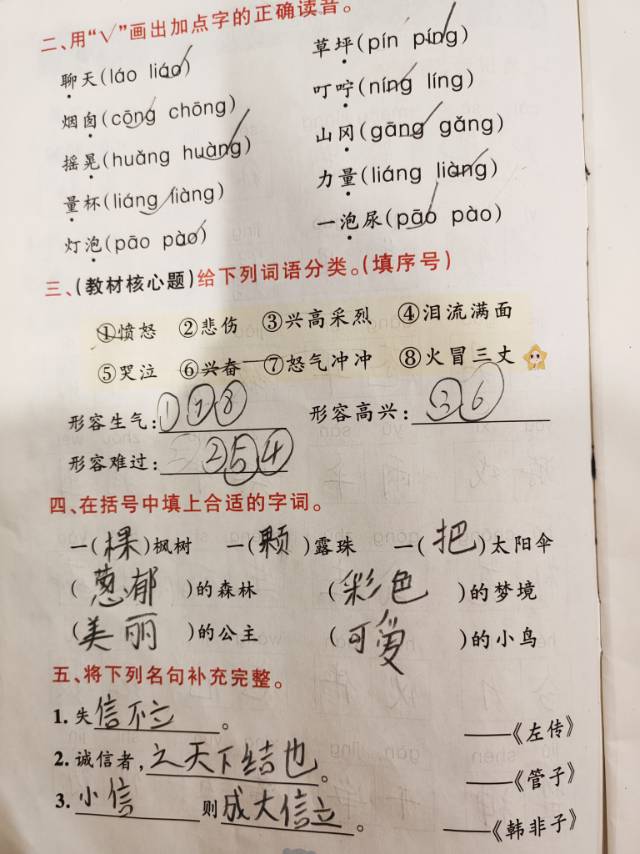 二、用“√”画出加点字的正确读音。
聊天(láo liáo) 草坪(pín píng)
烟囱(cōng chōng) 叮咛(níng líng)
摇晃(huǎng huàng) 山冈(gāng gǎng)
量杯(liáng liàng) 力量(liáng liàng)
灯泡(pāo pào) 一泡尿(pāo pào)
三、(教材核心题)给下列词语分类。(填序号)
①愤怒 ②悲伤 ③兴高采烈 ④泪流满面
⑤哭泣 ⑥兴奋 ⑦怒气冲冲 ⑧火冒三丈
形容生气:①⑦⑧ 形容高兴:③⑥
形容难过:②⑤④
四、在括号中填上合适的字词。
一(棵)枫树 一(颗)露珠 一(把)太阳伞
(葱郁)的森林 (彩色)的梦境
(美丽)的公主 (可爱)的小鸟
五、将下列名句补充完整。
1. 失信不立。 ——《左传》
2. 诚信者,之天下结也。 ——《管子》
3. 小信则成大信立。 ——《韩非子》